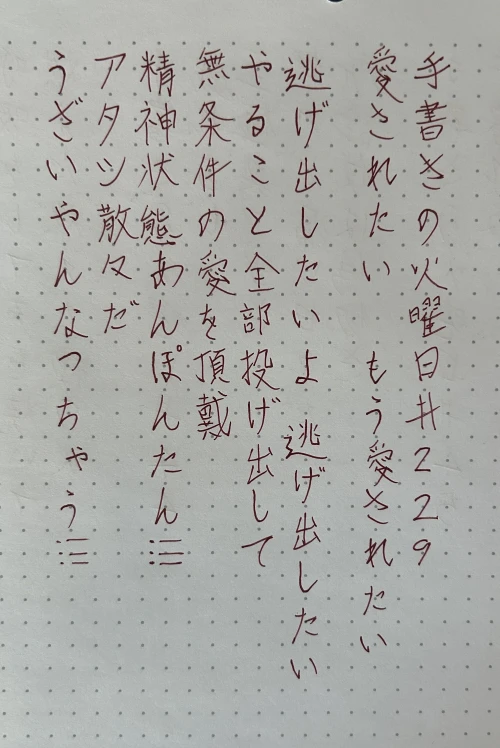 手書きの火曜日#229
愛されたい もう愛されたい
逃げ出したいよ 逃げ出したい
やること全部投げ出して
無条件の愛を頂戴
精神状態あんぽんたん!!!
アタシ散々だ
うざいやんなっちゃう!!!